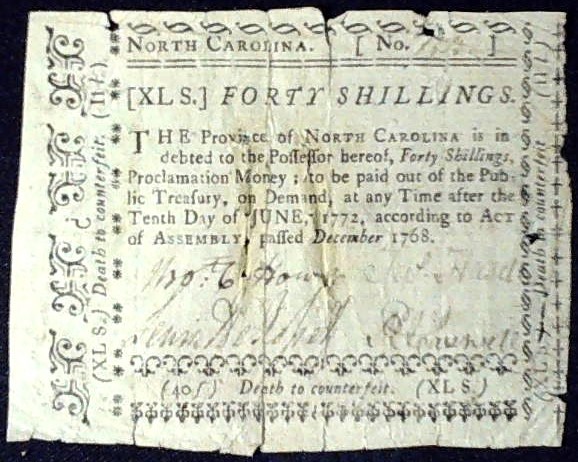 NORTH CAROLINA. [ No. ]
[XL S.] FORTY SHILLINGS.
THE Province of NORTH CAROLINA is in
debted to the Poſſeſſor hereof, Forty Shillings,
Proclamation Money; to be paid out of the Pub-
lic Treaſury, on Demand, at any Time after the
Tenth Day of JUNE, 1772, according to ACT
of ASSEMBLY, paſſed December 1768.
Lewis De Roſset
(40ſ) Death to counterfeit. (XL S.)
(XL S.) Death to counterfeit. (II £.)
(XL S.) Death to counterfeit (II £)